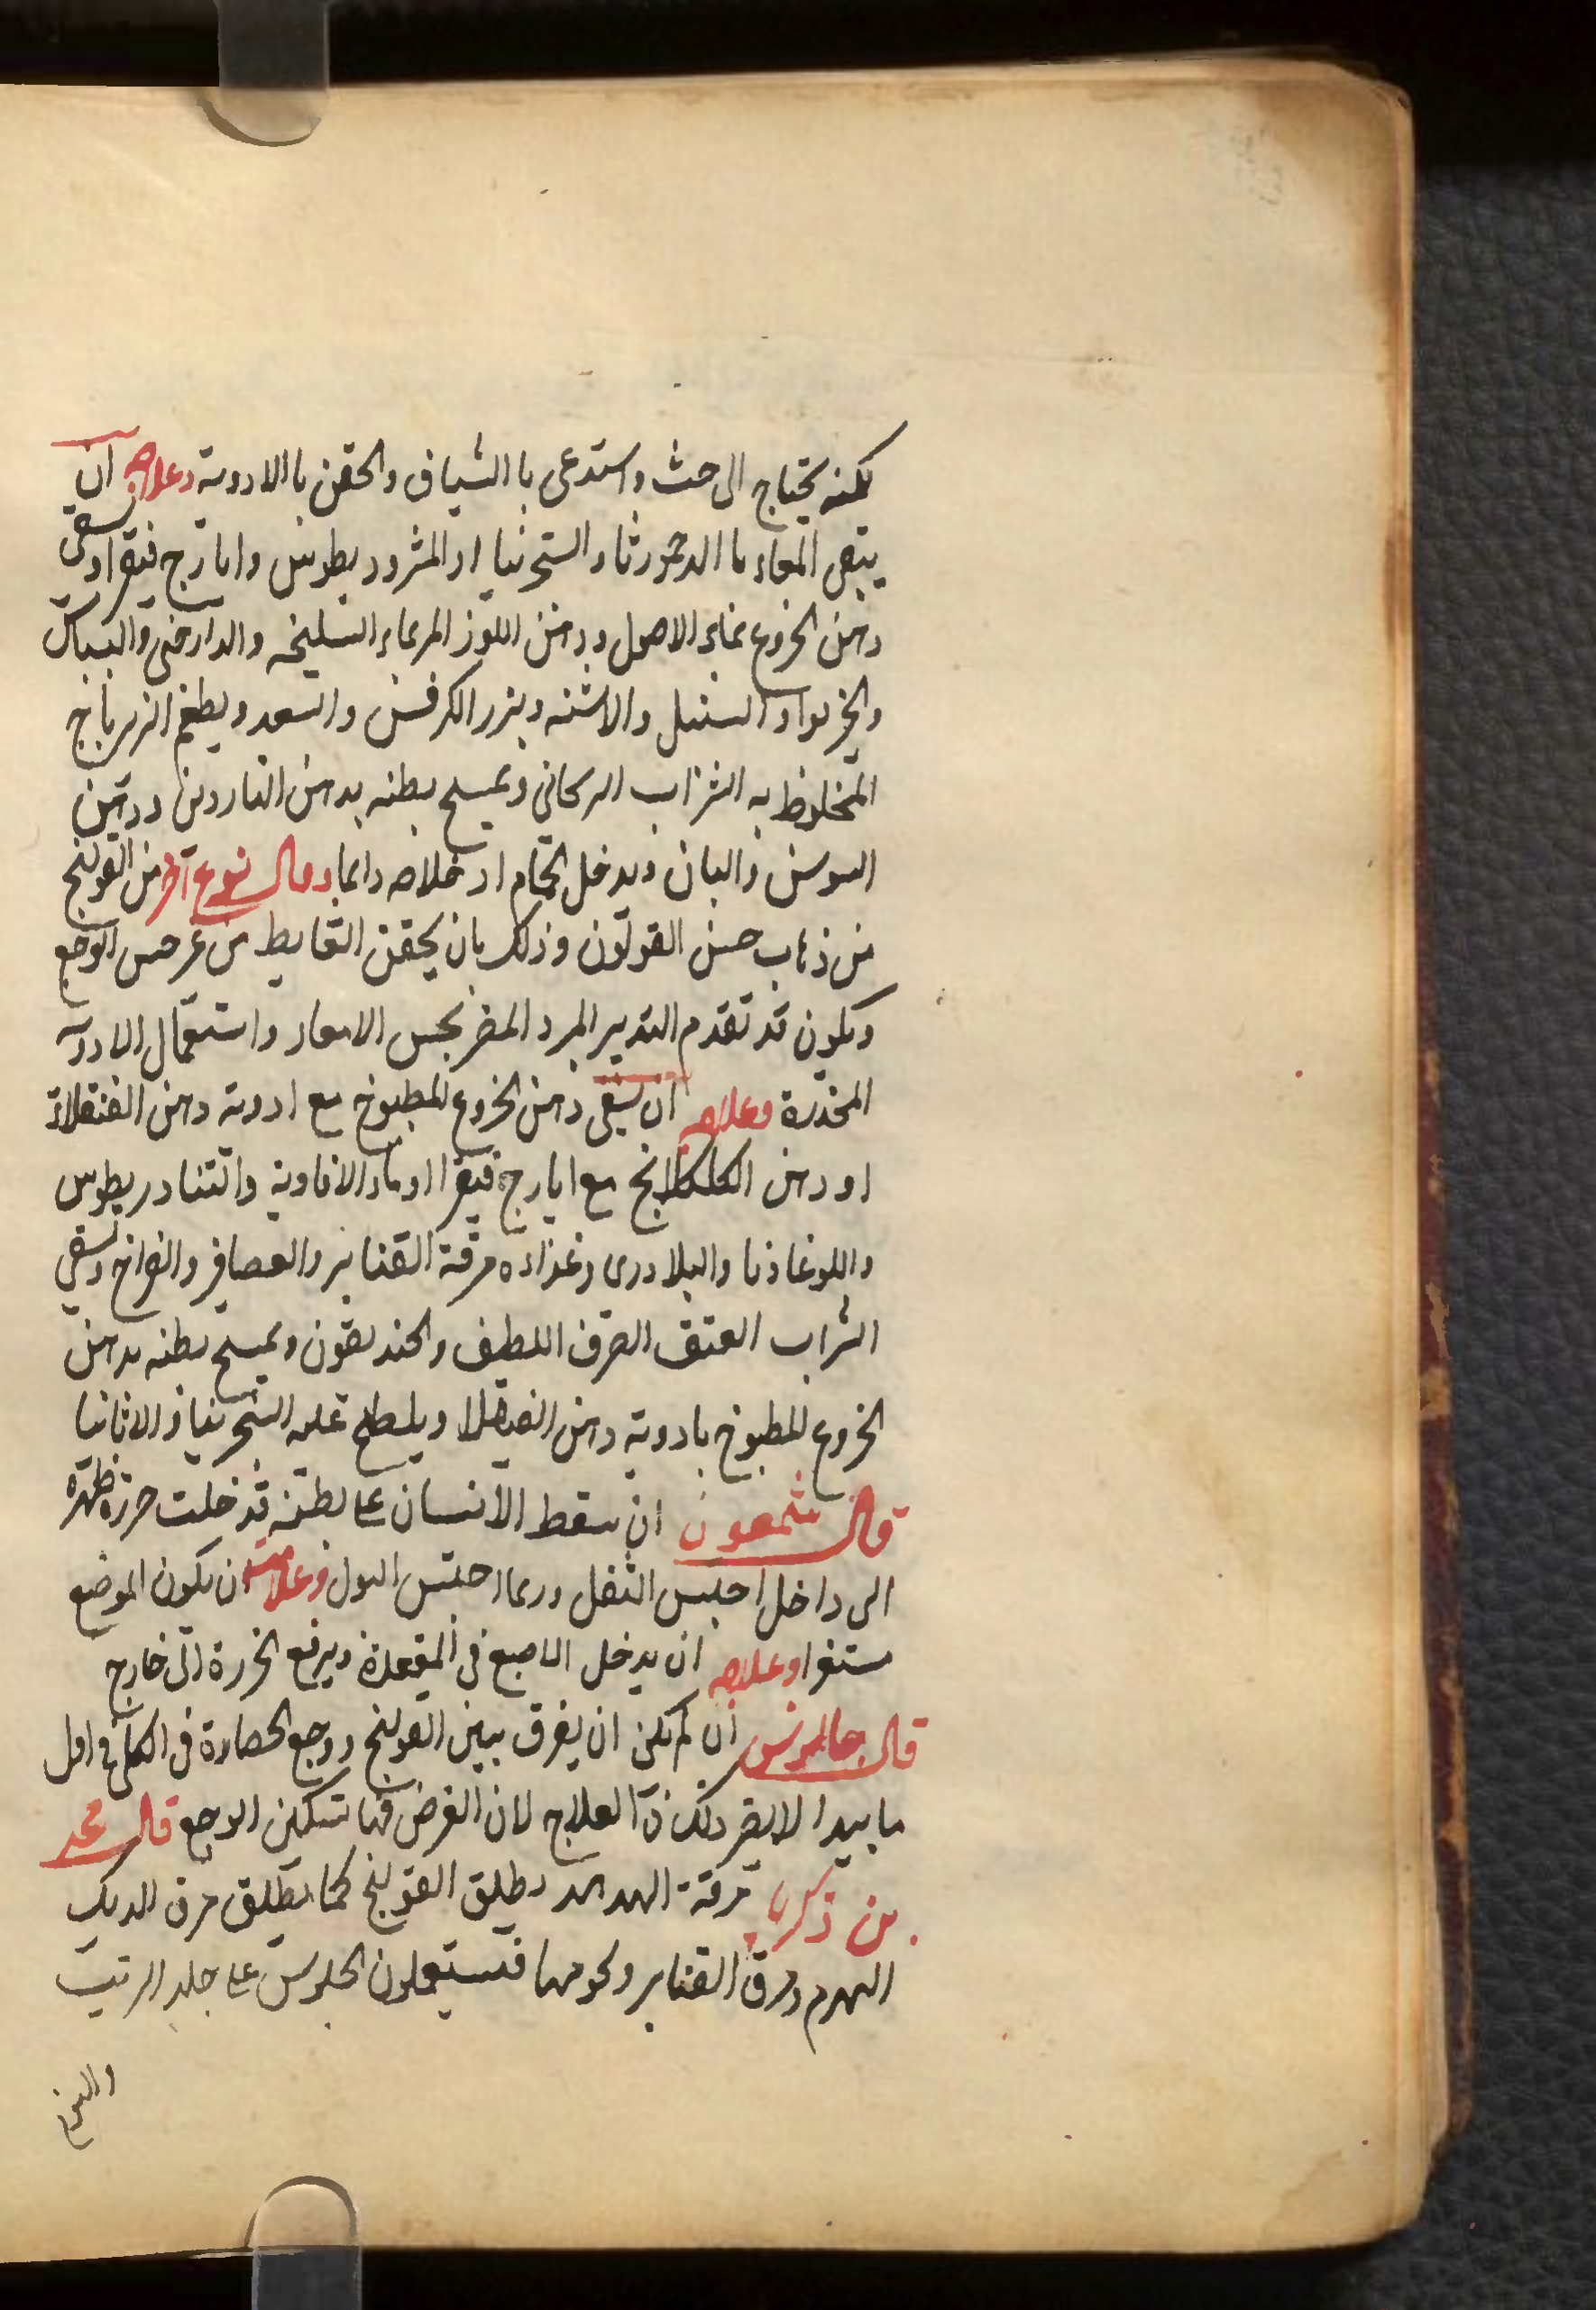 لكنه يحتاج الى حث واستدعى با الشياف والحقن با الادوية وعلاجه ان
ينقى المعاء با الدحمرثا والسجزنيا او المثرودبطوس وايارج فيقرا وسقى
دهن الخروع بماء الاصول ودهن اللوز المر بماء السليخه والدارصينى والبسباس
والخربوا والسنبل والاشنه وبزر الكرفس والسعد ويطعم الزيرباج
المخلوط به الشراب الريحانى ويمسح بطنه بدهن الناردين ودهن
السوسن والبان ويدخل الحمام او خلاصه دايما وقال نوع آخر من القولنج
من ذهاب حس القولون وذلك بان يحقن القايط من غير حس الوجع
ويكون قد تقدم التدبير المبرد المضر بحس الامعاء واستعمال الادوية
المخدرة وعلاجه ان يسقى دهن الخروع المطبوخ مع ادوية دهن القنقلاد
او دهن الكلكلانج مع ايارج فيقرا او ماء الافاوية والتنادريطوس
واللوغاذيا والبلادرى وغذاؤه مرقة القنابر والعصافير والفراخ ويسقى
الشراب العتيق الصرف اللطيف والخنديقون ويمسح بطنه بدهن
الخروع المطبوخ بادوية دهن القيقلا ويلطخ عليه السجزنيا والاثانيا
قال شمعون ان سقط الانسان على بطنه قد خلت خرزة ظهره
الى داخل احتبس الثفل وربما احتبس البول وعلامته ان يكون الموضع
مستقرا وعلاجه ان يدخل الاصبع فى المقعدة ويرفع الخرزة الى خارج
قال جالينوس ان لم يكن ان يفرق بين القولنج ووجع الحصاة فى الكلى فى اول
ما يبدا لا يضر ذلك فى العلاج لان الغرض فيهما تسكين الوجع قال محمد
بن زكريا مرقة الهدهد يطلق القولنج كما يطلق مرق الديك
الهرم ومرق القنابر ولحومها فيستعملون الجلوس على جلد الذيب
والنوم